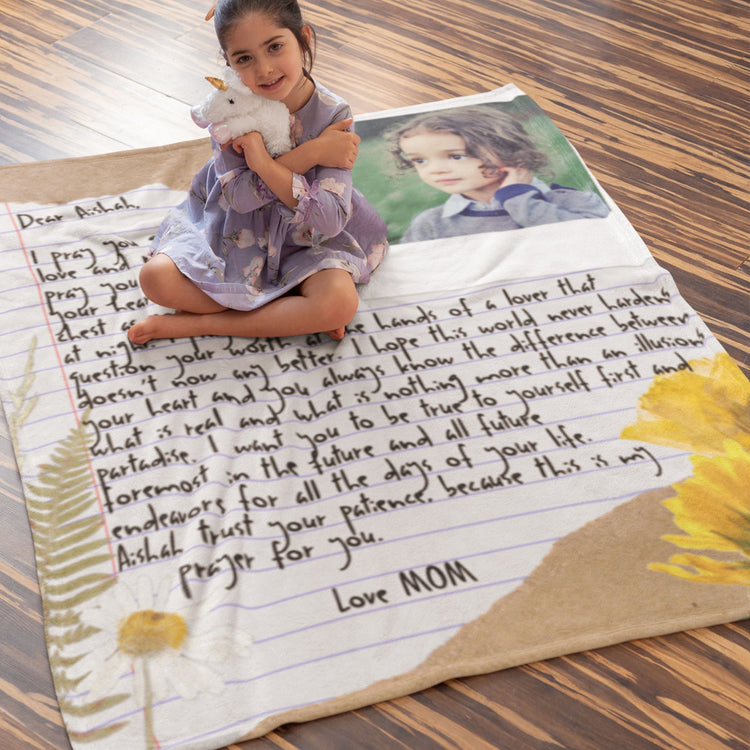 Dear Aishah,
I pray you
love and
pray you
your
chest
at
question your worth at the hands of a lover that
doesn't now any better. I hope this world never hardens
your heart and you always know the difference between
what is real and what is nothing more than an illusion
partadise. I want you to be true to yourself first and
foremost in the future and all future
endeavors for all the days of your life.
Aishah trust your patience. because this is my
prayer for you.
Love MOM